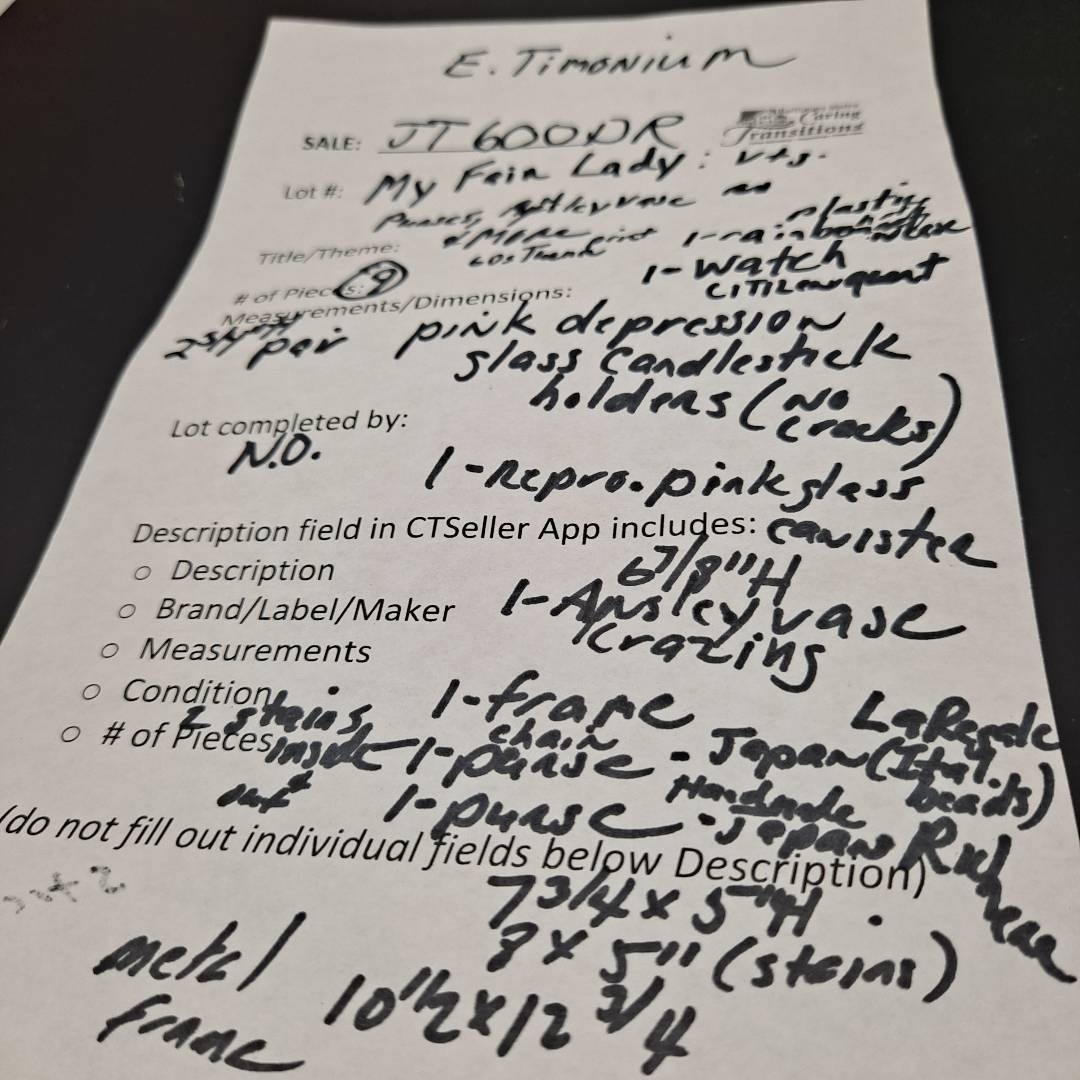 E. Timonium
SALE: JT600DR
Caring
Transitions
Lot #: My Fair Lady: vtg.
Purses, vase
& MORE
Title/Theme:
plastic
1-rainbow
# of Pieces: 9
1-Watch
Citizen quart
Measurements/Dimensions:
pair pink depression
glass Candlestick
holders (No
cracks)
Lot completed by:
N.O.
1-Repro. pink glass
canister
Description field in CTSeller App includes:
6 7/8"H
○ Description
○ Brand/Label/Maker
1-Ansley vase
crazing
○ Measurements
○ Condition
1-frame
LaRegale
○ # of Pieces
2 stains
inside
1-chain purse - Japan (Ital. beads)
1-purse - Handmade Japan
(do not fill out individual fields below Description)
7 3/4 x 5"H
8 x 5" (stains)
metal
frame
10 1/2 x 12 3/4